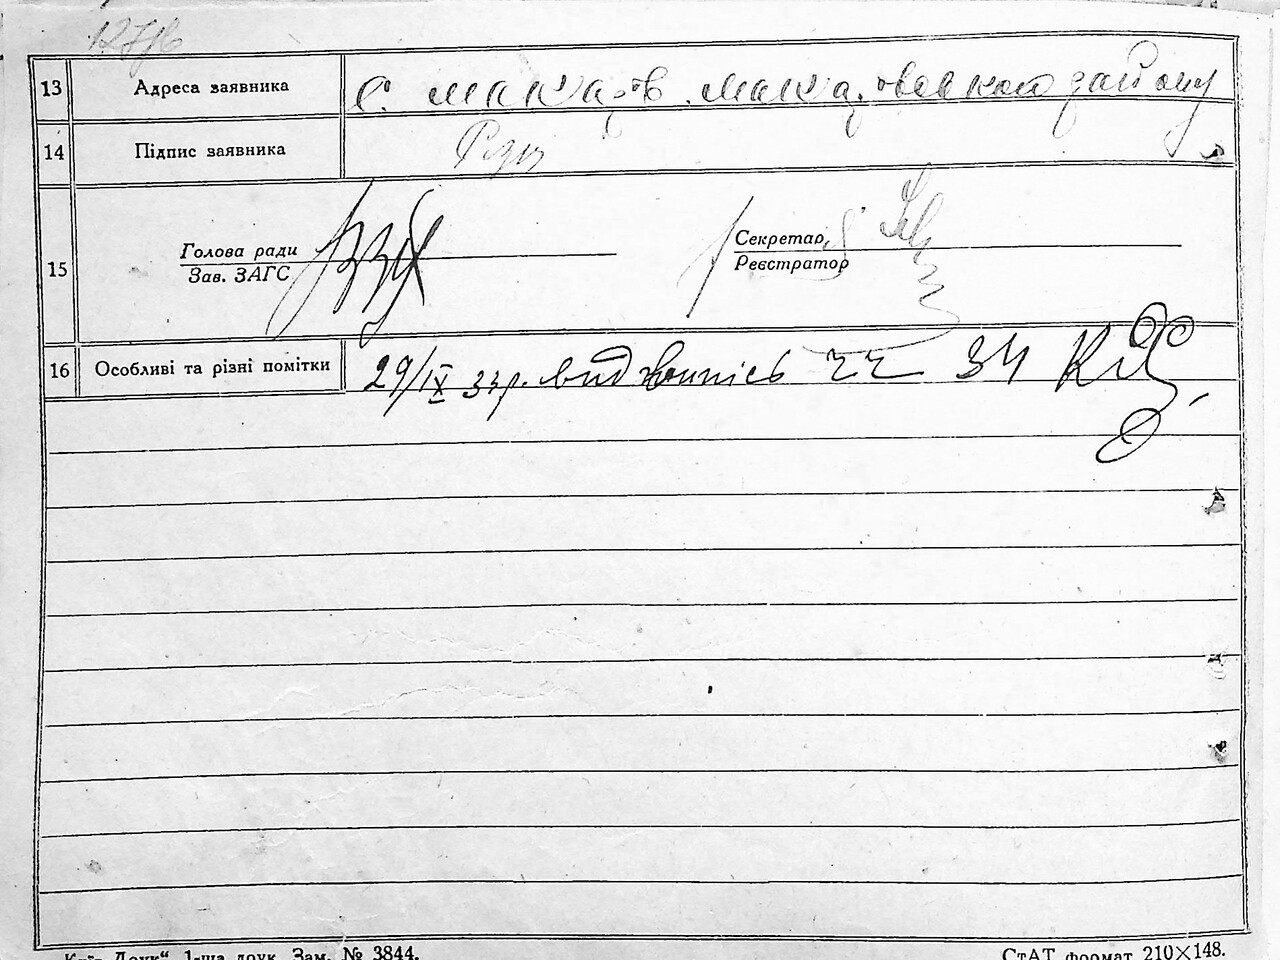 13 Адреса заявника с. Макарів Макарівского району
14 Підпис заявника
15 Голова ради
Зав. ЗАГС
Секретар
Реєстратор
16 Особливі та різні помітки 29/IX 33р. вид 34
1-ша друк. Зам. № 3844.
СтАТ формат 210×148.